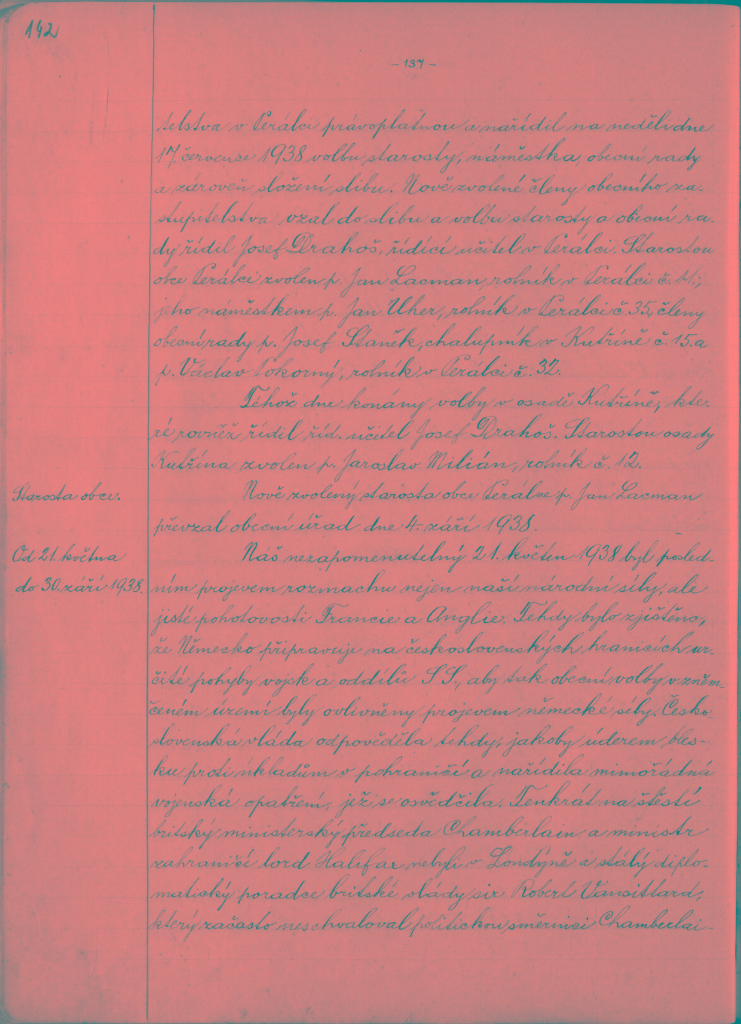 142
- 137 -
telstva v Perálci právoplatnou a nařídil na neděli dne
17. července 1938 volbu starosty, náměstka, obecní rady
a zároveň složení slibu. Nově zvolené členy obecního za-
stupitelstva vzal do slibu a volbu starosty a obecní ra-
dy řídil Josef Drahoš, řídící učitel v Perálci. Starostou
obce Perálci zvolen p. Jan Lacman, rolník v Perálci č.
jeho náměstkem p. Jan Uher, rolník v Perálci č. 35, členy
obecní rady p. Josef Staněk, chalupník v Kutříně č. 15 a
p. Václav Pokorný, rolník v Perálci č. 32.
Téhož dne konány volby v osadě Kutříně, kte-
ré rovněž řídil říd. učitel Josef Drahoš. Starostou osady
Kutřína zvolen p. Jaroslav Milián, rolník č. 12.
Starosta obce.
Nově zvolený starosta obce Perálce p. Jan Lacman
převzal obecní úřad dne 4. září 1938.
Od 21. května
do 30. září 1938.
Náš nezapomenutelný 21. květen 1938 byl posled-
ním projevem rozmachu nejen naší národní síly, ale
jisté pohotovosti Francie a Anglie. Tehdy bylo zjištěno,
že Německo připravuje na československých hranicích ur-
čité pohyby vojsk a oddílů SS, aby tak obecní volby v zněm-
čeném území byly ovlivněny projevem německé síly. Česko-
slovenská vláda odpověděla tehdy, jakoby úderem bles-
ku proti úkladům v pohraničí a nařídila mimořádná
vojenská opatření, jež se osvědčila. Tenkrát na štěstí
britský ministerský předseda Chamberlain a ministr
zahraničí lord Halifax nebyli v Londýně a stálý diplo-
matický poradce britské vlády sir Robert Vansittard,
který začasto neschvaloval politickou směrnici Chamberlai-